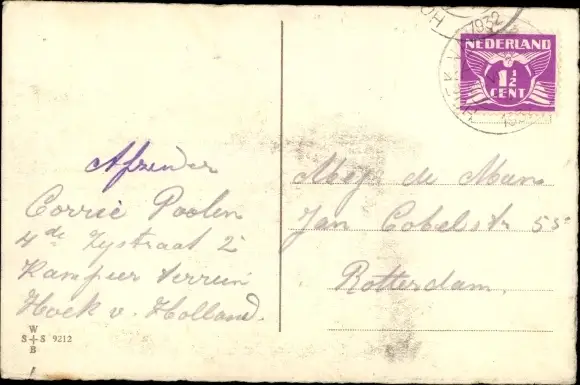 Afzender
Corrie Poolen
4de Zijstraat 2
Kampeer terrein
Hoek v. Holland.
W
S S 9212
B
1932
HOEK V
NEDERLAND
1 1/2
CENT
Mej. de Man
Jan Cobelstr 55
Rotterdam.